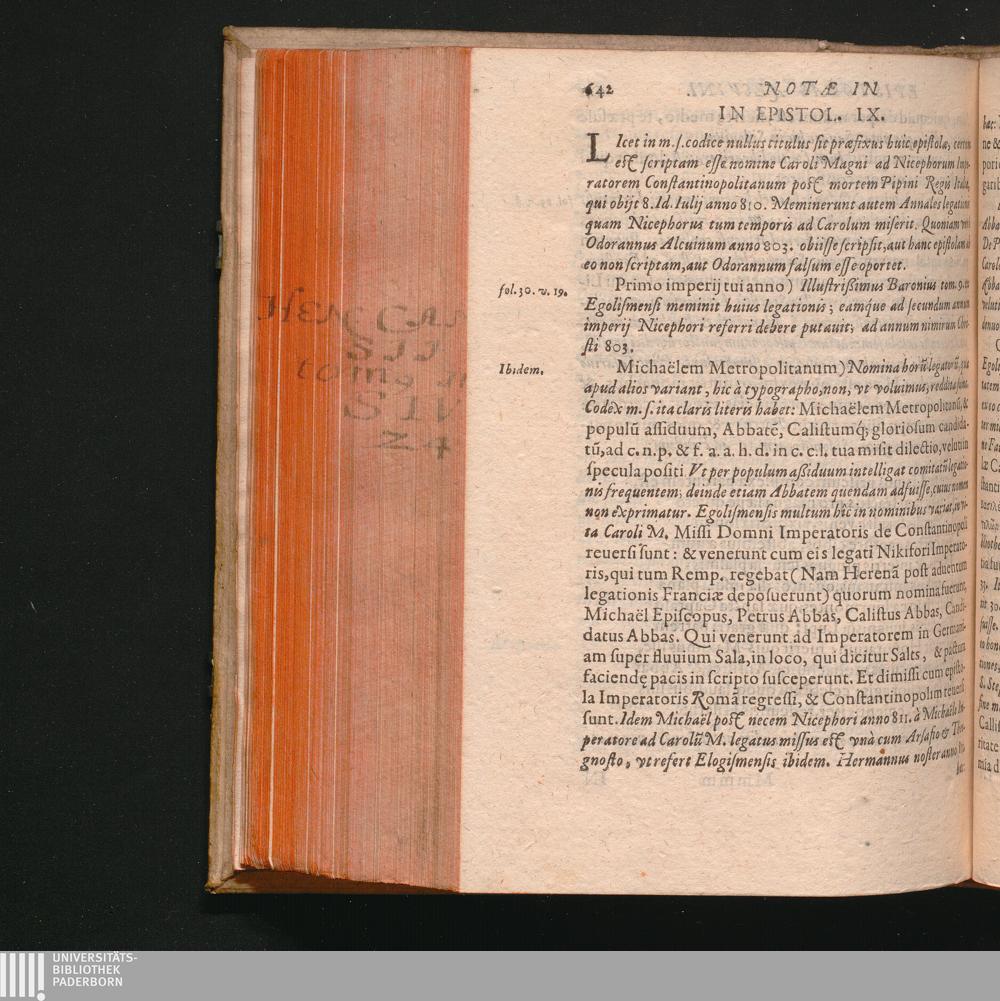 642 NOTÆ IN
IN EPISTOL. IX.
LIcet in m. ſ. codice nullus titulus ſit præfixus huic epiſtolæ, certum
eſt ſcriptam eſſe nomine Caroli Magni ad Nicephorum Impe-
ratorem Conſtantinopolitanum poſt mortem Pipini Regis Italiæ,
qui obijt 8. Id. Iulij anno 810. Meminerunt autem Annales legationis
quam Nicephorus tum temporis ad Carolum miſerit. Quoniam verò
Odorannus Alcuinum anno 803. obiiſſe ſcripſit, aut hanc epiſtolam ab
eo non ſcriptam, aut Odorannum falſum eſſe oportet.
fol. 30. v. 19. Primo imperij tui anno) Illuſtriſſimus Baronius tom. 9. ex
Egoliſmenſi meminit huius legationis; eamque ad ſecundum annum
imperij Nicephori referri debere putauit; ad annum nimirum Chri-
ſti 803.
Ibidem. Michaëlem Metropolitanum) Nomina horū legatorū, quæ
apud alios variant, hic à typographo, non, vt voluimus, reddita ſunt.
Codex m. ſ. ita claris literis habet: Michaëlem Metropolitanū, &
populū aſſiduum, Abbatē, Caliſtumq́; glorioſum candida-
tū, ad c. n. p. & f. a. a. h. d. in c. c. l. tua miſit dilectio, velut in
ſpecula poſiti Vt per populum aſſiduum intelligat comitatū legatio-
nis frequentem; deinde etiam Abbatem quendam adfuiſſe, cuius nomen
non exprimatur. Egoliſmenſis multum hìc in nominibus variat, in vi-
ta Caroli M. Miſſi Domni Imperatoris de Conſtantinopoli
reuerſi ſunt: & venerunt cum eis legati Nikifori Imperato-
ris, qui tum Remp. regebat (Nam Herenā poſt aduentum
legationis Franciæ depoſuerunt) quorum nomina fuerunt,
Michaël Epiſcopus, Petrus Abbas, Caliſtus Abbas, Candi-
datus Abbas. Qui venerunt ad Imperatorem in German-
am ſuper fluuium Sala, in loco, qui dicitur Salts, & pactum
faciendę pacis in ſcripto ſuſceperunt. Et dimiſſi cum epiſto-
la Imperatoris Romā regreſſi, & Conſtantinopolim reuerſi
ſunt. Idem Michaël poſt necem Nicephori anno 811. à Michaële Im-
peratore ad Carolū M. legatus miſſus eſt vnà cum Arſafio & Theo-
gnoſto, vt refert Elogiſmenſis ibidem. Hermannus noſter anno
UNIVERSITÄTS-
BIBLIOTHEK
PADERBORN